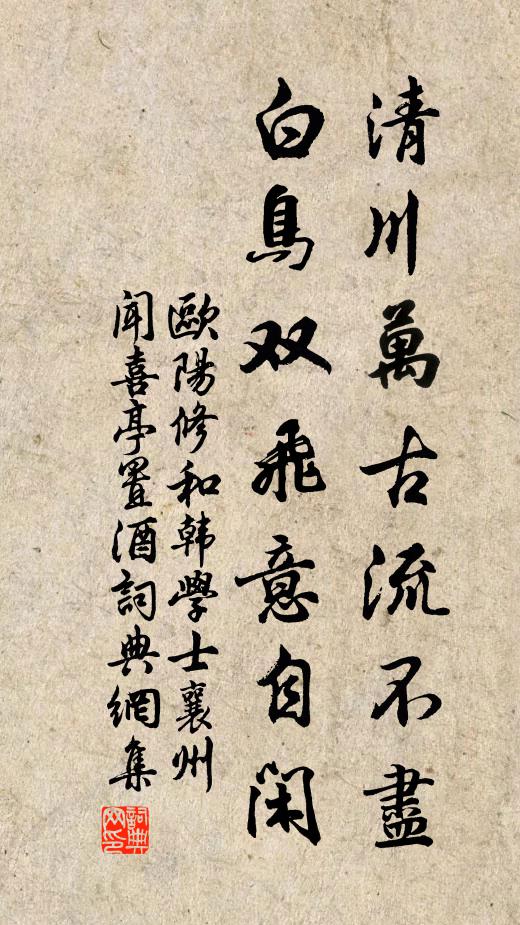 清川萬古流不盡
白鳥双飛意自闲
歐陽修和韩學士襄州
闻喜亭置酒詞典網集
詞典
网印